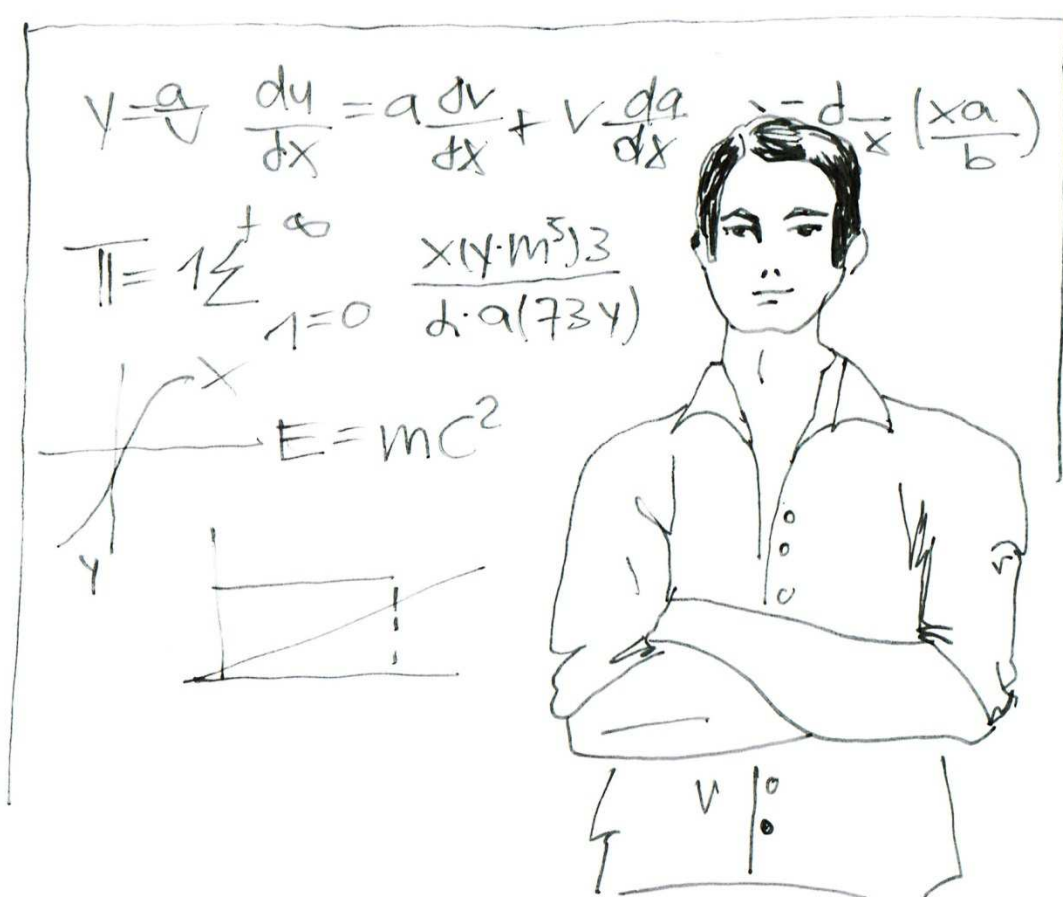 y = a/v du/dx = a dv/dx + v da/dx d/x (xa/b)
π = 1 Σ +∞ 1=0 x(y·m⁵)3 / d·a(73y)
X
E = mc²
Y